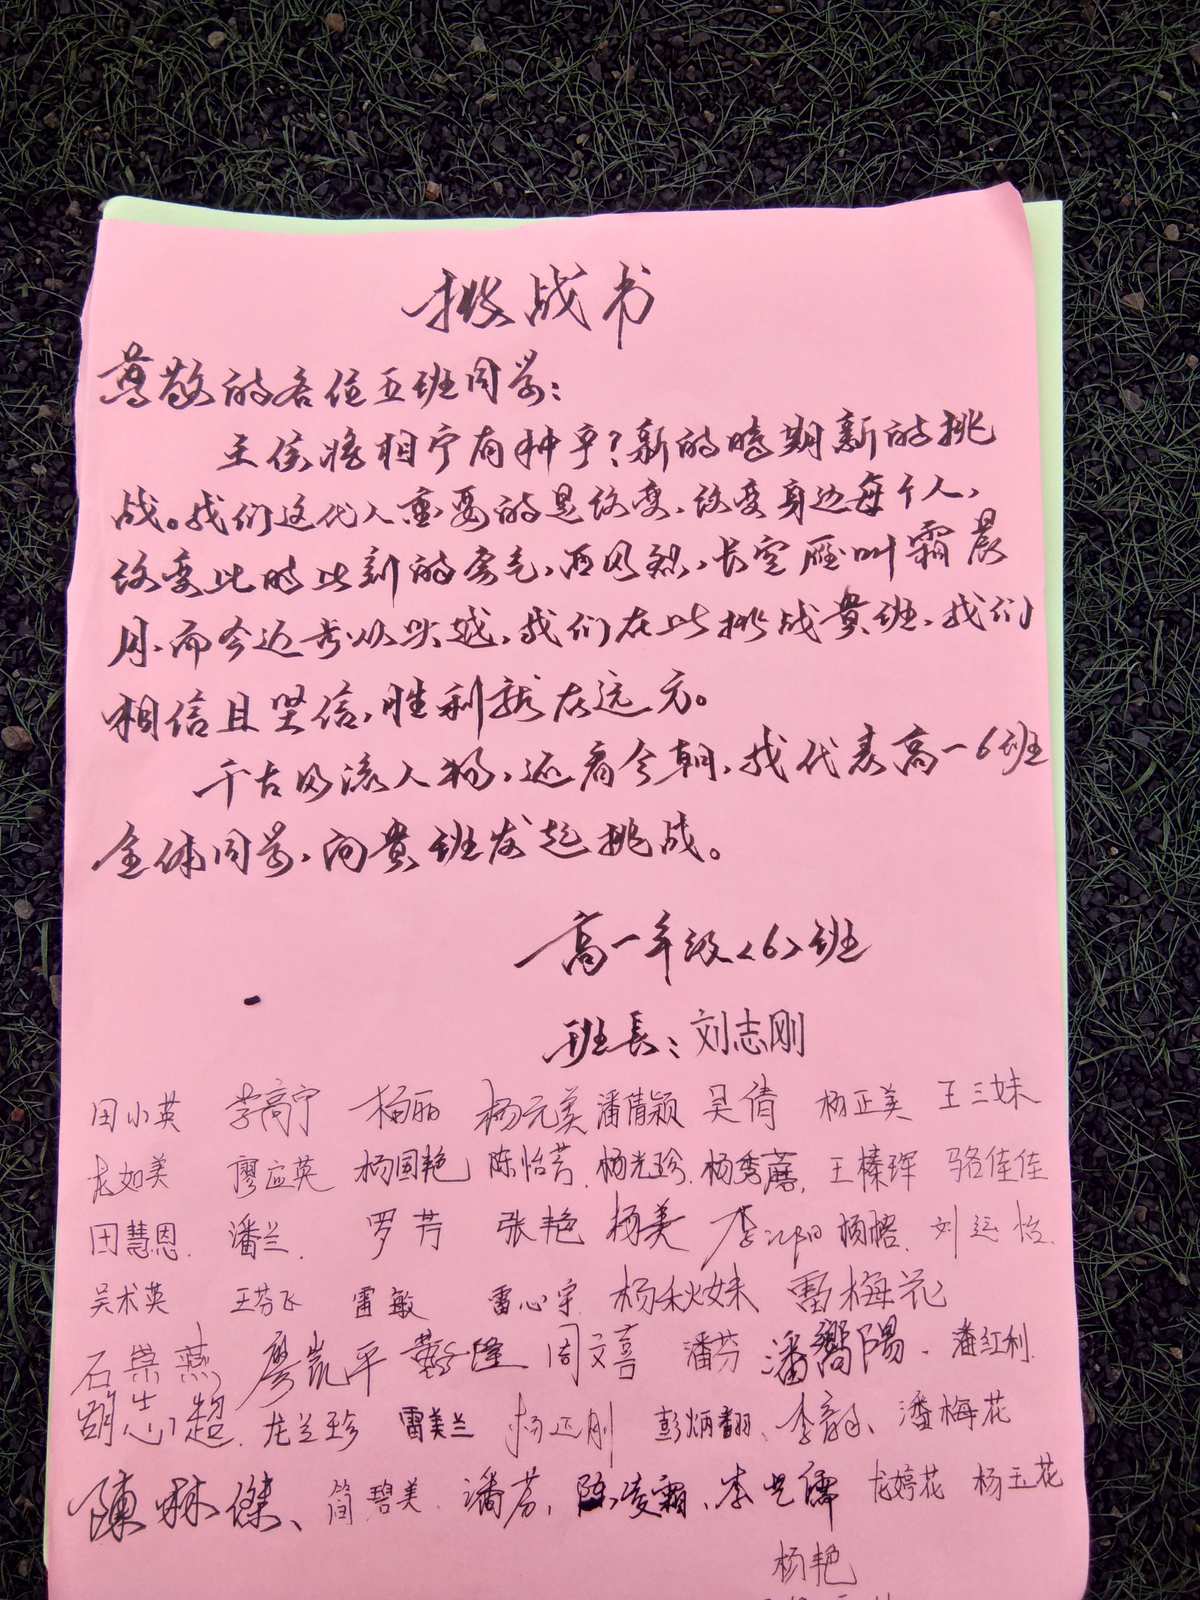 挑战书
尊敬的各位五班同学：
王侯将相宁有种乎？新的时期新的挑
战。我们这代人重要的是改变、改变身边每个人、
改变此时此刻的勇气，西风烈，长空雁叫霜晨
月、而今迈步从头越，我们在此挑战贵班、我们
相信且坚信，胜利就在远方。
千古风流人物，还看今朝，我代表高一6班
全体同学、向贵班发起挑战。
高一年级<6>班
班長：刘志刚
田小英 李高宁 杨丽 杨元美 潘倩颖 吴倩 杨正美 王三妹
龙如美 廖应英 杨国艳 陈怡芳 杨光珍 杨秀蘑 王榛珲 骆佳佳
田慧恩 潘兰 罗芳 张艳 杨美 李沁阳 杨榕 刘运怡
吴术英 王芬飞 雷敏 雷心宇 杨秋妹 雷梅花
石崇燕 廖凯平 周文喜 潘芬 潘嚮陽 潘红利
胡志超 龙兰珍 雷美兰 杨还刚 彭炳翻 潘梅花
陳琳傑、简碧美 潘芳 陈凌霜、龙婷花 杨玉花
杨艳